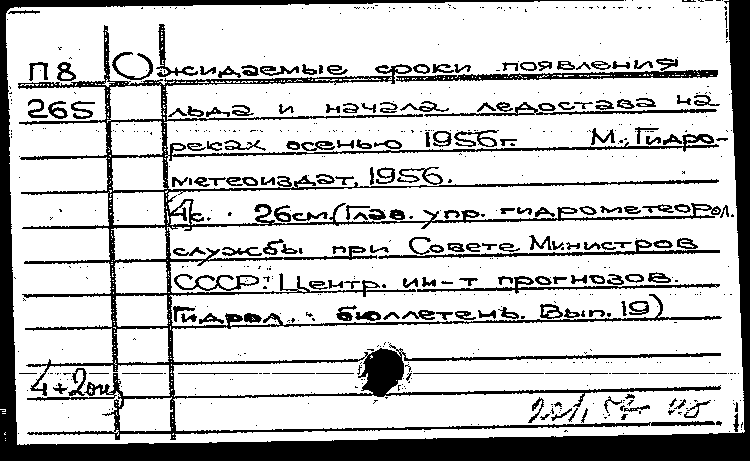 П8 Ожидаемые сроки появления
265 льда и начала ледостава на
реках осенью 1956г. М., Гидро-
метеоиздат, 1956.
4с. 26см. (Глав. упр. гидрометеорол.
службы при Совете Министров
СССР. Центр. ин-т прогнозов.
Гидрол. бюллетень. Вып. 19)
4+2